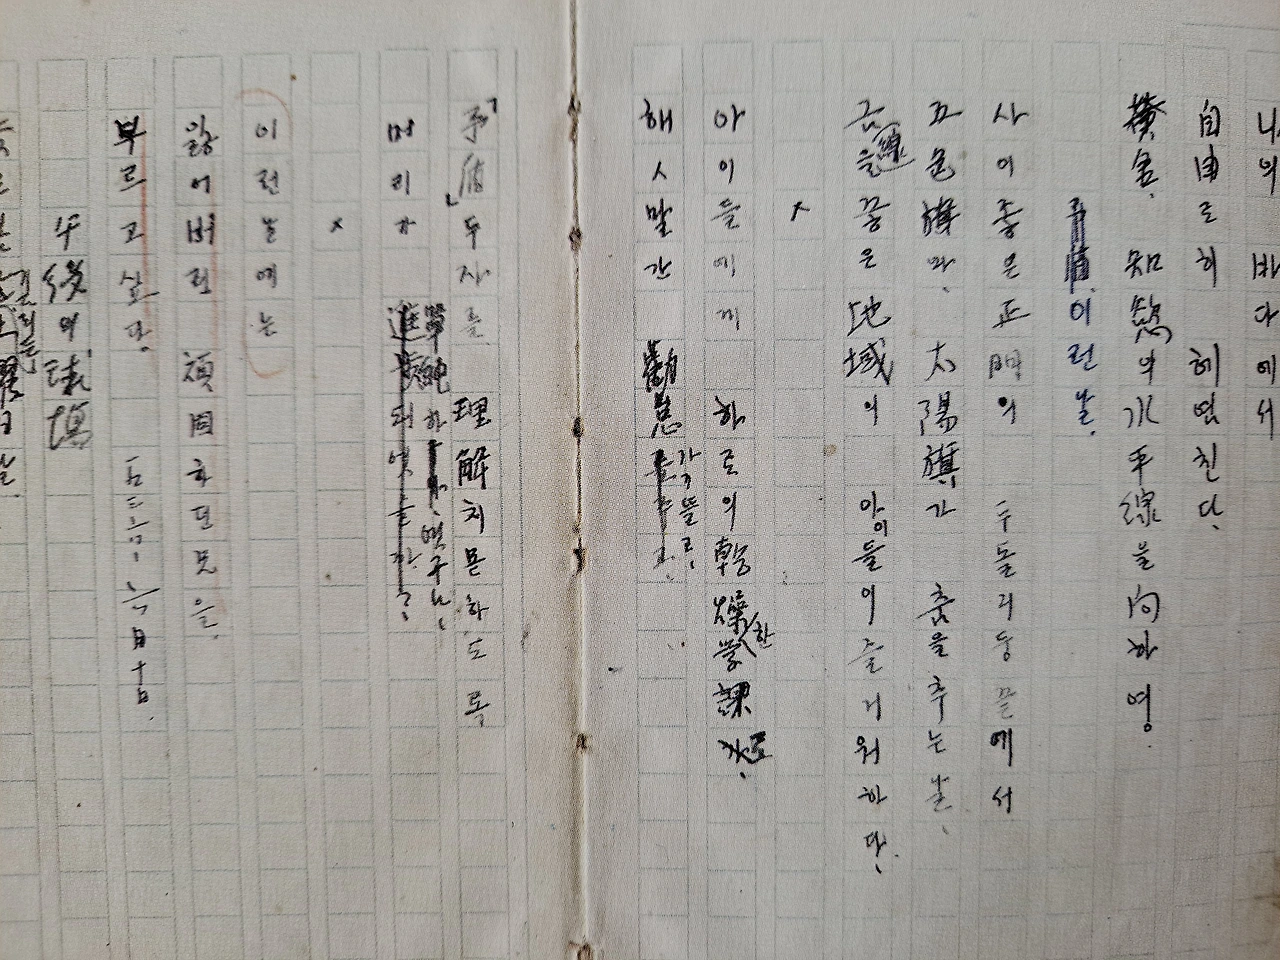 나의 바다에서
自由로히 헤염친다.
黃金、知慾의水平線을向하여.
矛盾 이런날.
사이좋은正門의 두돌기둥끝에서
五色旗와、太陽旗가 춤을추는날、
금線을끟은地域의 아이들이즐거워하다、
×
아이들에게 하로의乾燥한學課로、
해ㅅ말간 倦怠가
「矛盾」두자를 理解치몯하도록
머리가 單純하엿구나、
×
이런날에는
잃어버린 頑固하던兄을、
부르고싶다.
一九三六、六月十日.
午後의球場